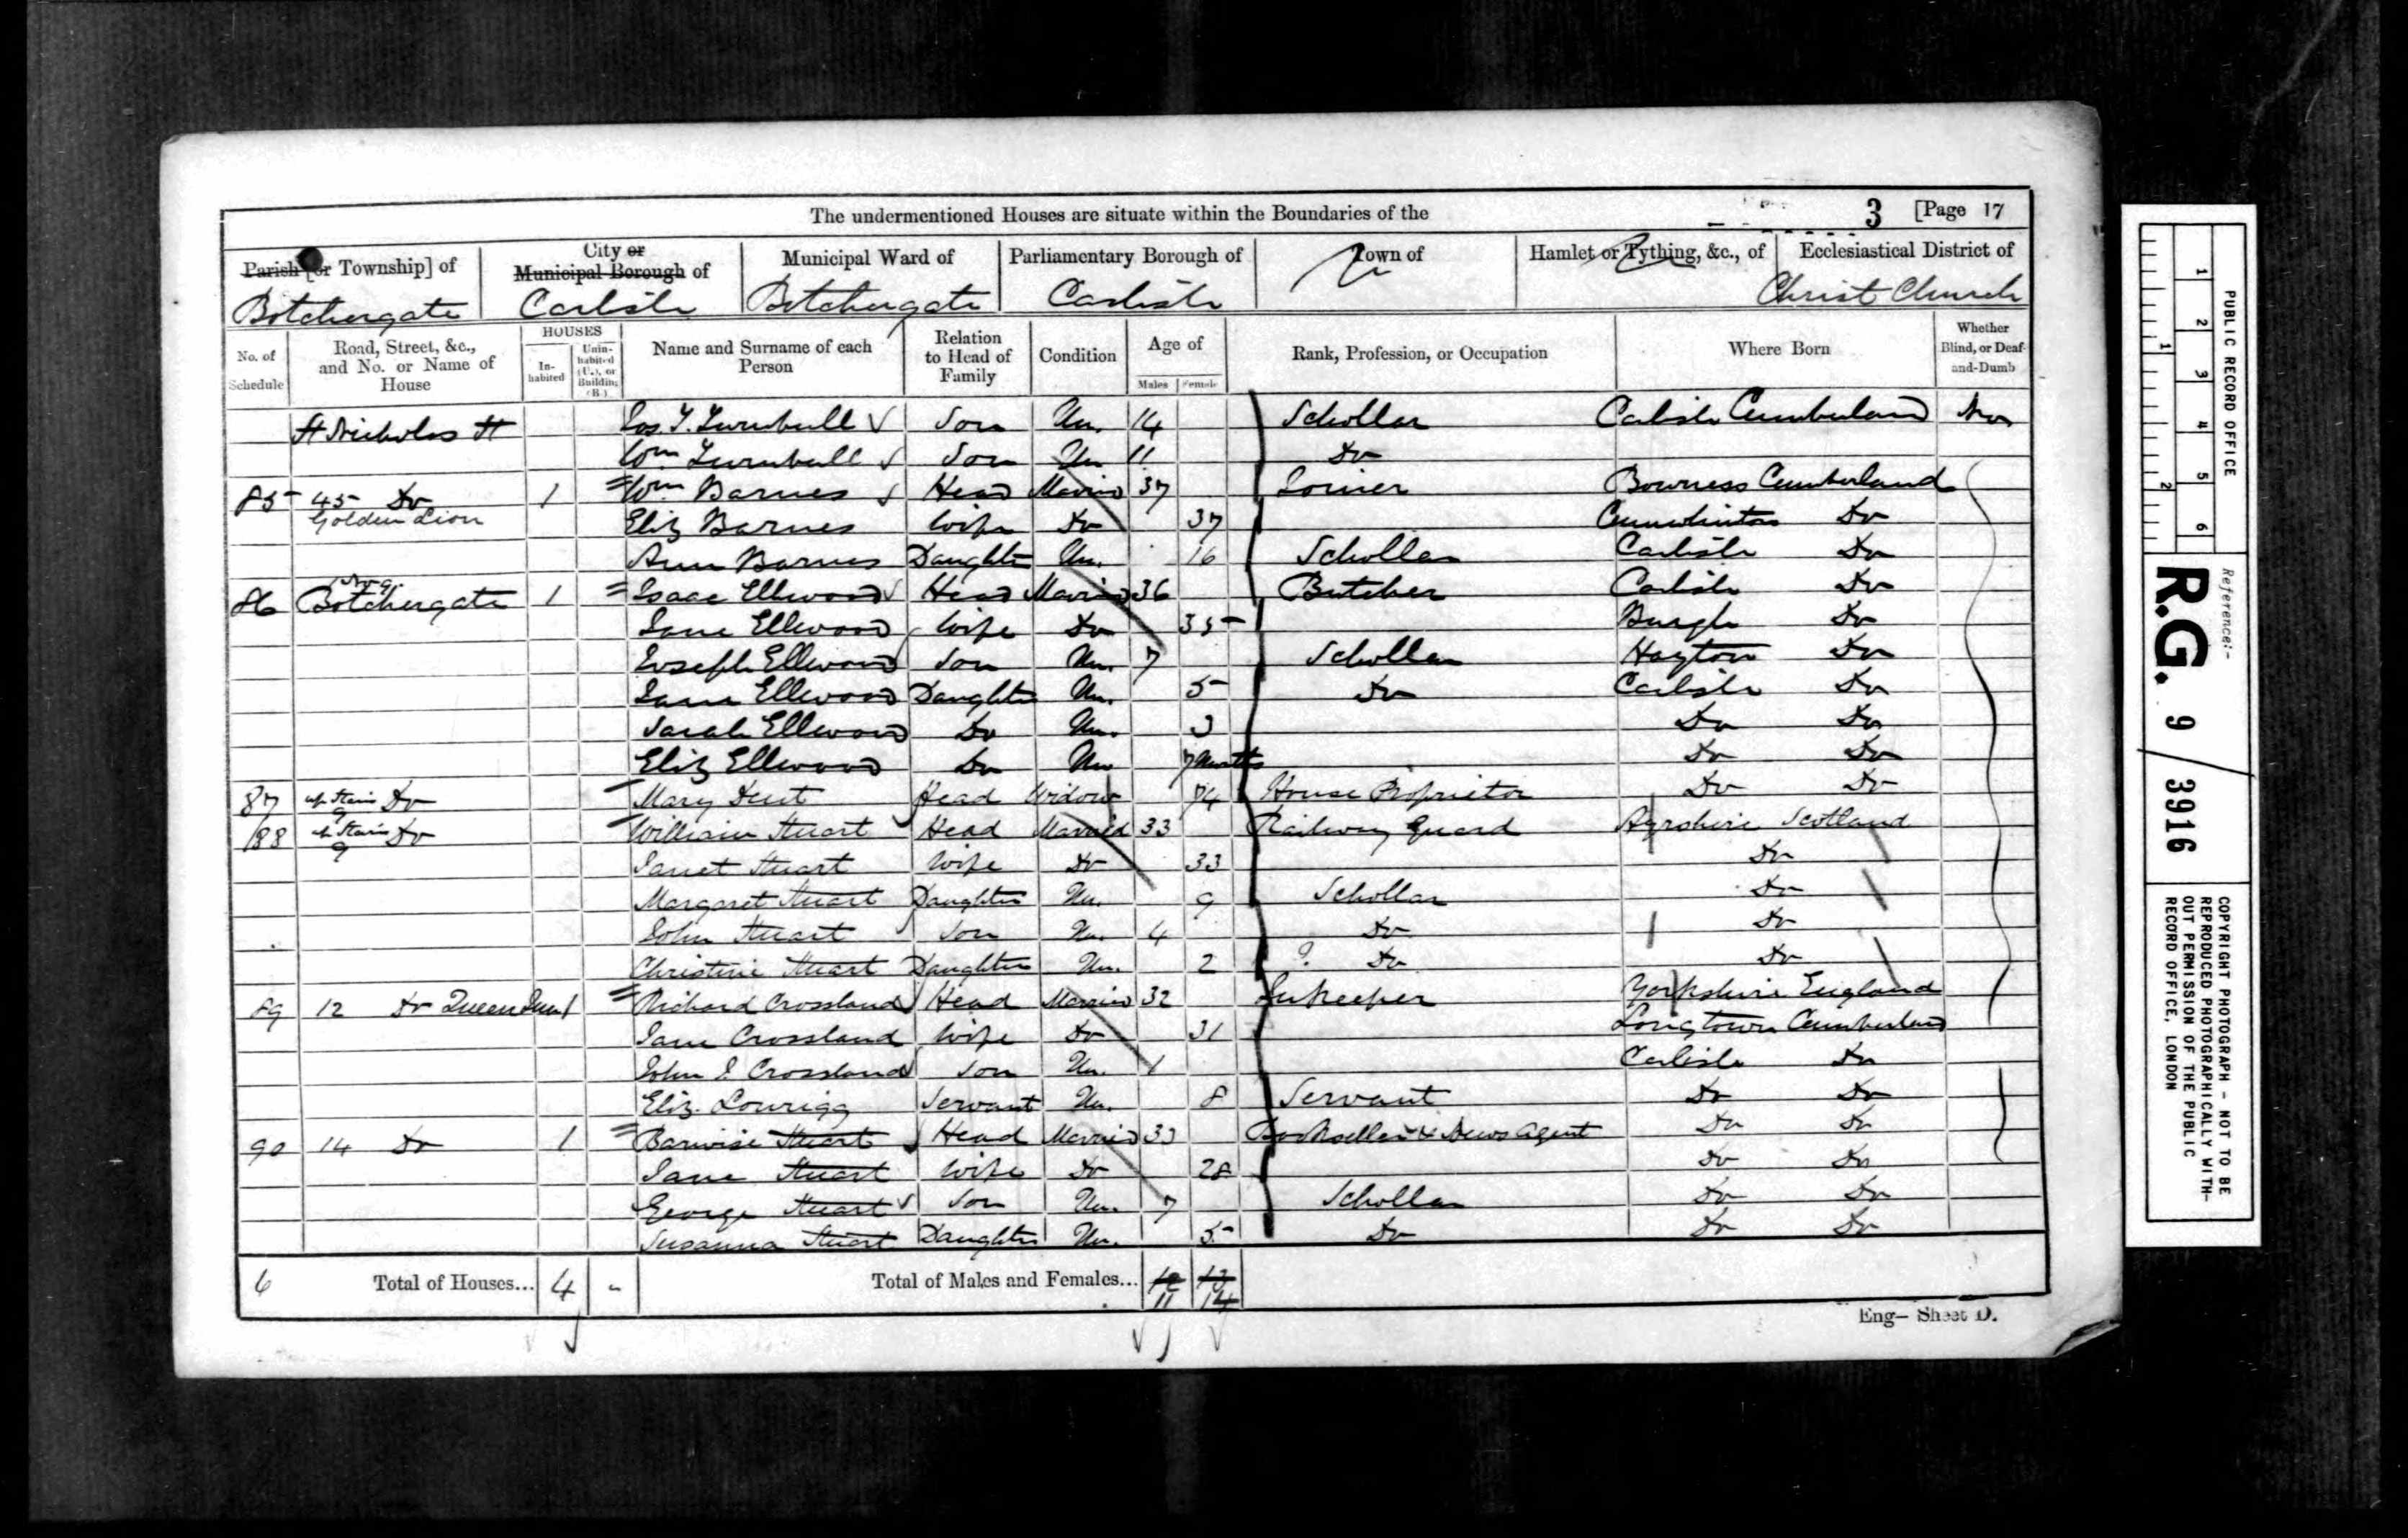 The undermentioned Houses are situate within the Boundaries of the
3 [Page 17
Parish [or Township] of
City or Municipal Borough of
Municipal Ward of
Parliamentary Borough of
Town of
Hamlet or Tything, &c., of
Ecclesiastical District of
Botchergate Carlisle Botchergate Carlisle Christ Church
No. of Schedule
Road, Street, &c., and No. or Name of House
HOUSES
In-habited
Unin-habited (U.), or Building (B.)
Name and Surname of each Person
Relation to Head of Family
Condition
Age of
Males Females
Rank, Profession, or Occupation
Where Born
Whether Blind, or Deaf-and-Dumb
St Nicholas St Jos. T. Turnbull Son Un. 14 Schollar Carlisle Cumberland
Wm Turnbull Son Un 11 Do
85 45 Do 1 Wm Barnes Head Married 37 Joiner Bowness Cumberland
Golden Lion Eliz Barnes Wife Do 37 Cumwhinton Do
Ann Barnes Daughter Un. 16 Schollar Carlisle Do
86 No 9. Botchergate 1 Isaac Ellwood Head Married 36 Butcher Carlisle Do
Jane Ellwood Wife Do 35 Burgh Do
Joseph Ellwood Son Un. 7 Schollar Hayton Do
Jane Ellwood Daughter Un. 5 Do Carlisle Do
Sarah Ellwood Do Un. 3 Do Do
Eliz Ellwood Do Un 7 Months Do Do
87 up Stairs 9 Do Mary Head Widow 74 House Proprietor Do Do
88 up Stairs 9 Do William Stuart Head Married 33 Railway Guard Ayrshire Scotland
Janet Stuart Wife Do 33 Do
Margaret Stuart Daughter Un. 9 Schollar Do
John Stuart Son Un. 4 Do Do
Christine Stuart Daughter Un. 2 ? Do Do
89 12 Do Queen 1 Richard Crossland Head Married 32 Inkeeper Yorkshire England
Jane Crossland Wife Do 31 Longtown Cumberland
John J. Crossland Son Un. 1 Carlisle Do
Eliz. Lowrigg Servant Un. 8 Servant Do Do
90 14 Do 1 Barwise Stuart Head Married 33 Bookseller & News Agent Do Do
Jane Stuart Wife Do 28 Do Do
George Stuart Son Un. 7 Schollar Do Do
Susanna Stuart Daughter Un. 5 Do Do Do
6 Total of Houses... 4 - Total of Males and Females... 12 13
11 14
Eng- Sheet D.
PUBLIC RECORD OFFICE
1 2 3 4 5 6
1 2
Reference:-
R.G. 9 / 3916
COPYRIGHT PHOTOGRAPH - NOT TO BE
REPRODUCED PHOTOGRAPHICALLY WITH-
OUT PERMISSION OF THE PUBLIC
RECORD OFFICE, LONDON